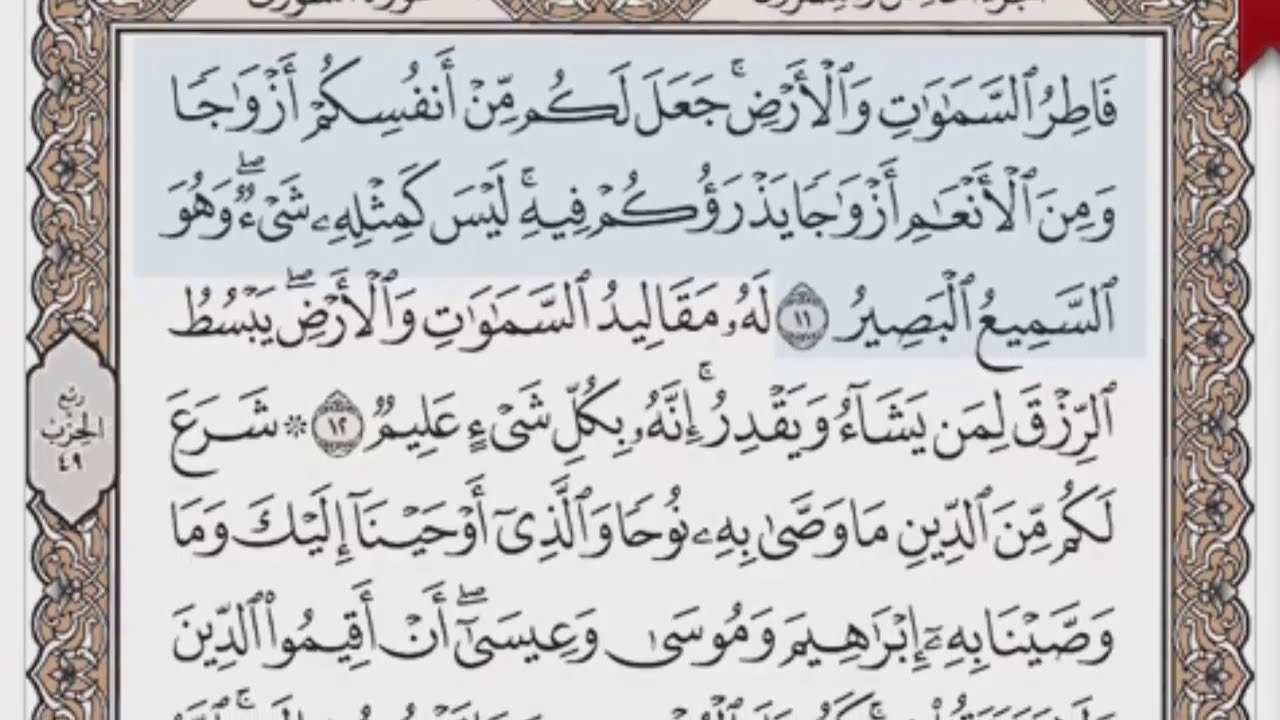 فَاطِرُ ٱلسَّمَـٰوَٰتِ وَٱلْأَرْضِ ۚ جَعَلَ لَكُم مِّنْ أَنفُسِكُمْ أَزْوَٰجًا
وَمِنَ ٱلْأَنْعَـٰمِ أَزْوَٰجًا يَذْرَؤُكُمْ فِيهِ ۚ لَيْسَ كَمِثْلِهِۦ شَىْءٌ ۖ وَهُوَ
ٱلسَّمِيعُ ٱلْبَصِيرُ ١١ لَهُۥ مَقَالِيدُ ٱلسَّمَـٰوَٰتِ وَٱلْأَرْضِ ۖ يَبْسُطُ
ٱلرِّزْقَ لِمَن يَشَآءُ وَيَقْدِرُ ۚ إِنَّهُۥ بِكُلِّ شَىْءٍ عَلِيمٌ ١٢ ۞ شَرَعَ
ربع
الحزب
٤٩
لَكُم مِّنَ ٱلدِّينِ مَا وَصَّىٰ بِهِۦ نُوحًا وَٱلَّذِىٓ أَوْحَيْنَآ إِلَيْكَ وَمَا
وَصَّيْنَا بِهِۦٓ إِبْرَٰهِيمَ وَمُوسَىٰ وَعِيسَىٰٓ ۖ أَنْ أَقِيمُوا۟ ٱلدِّينَ